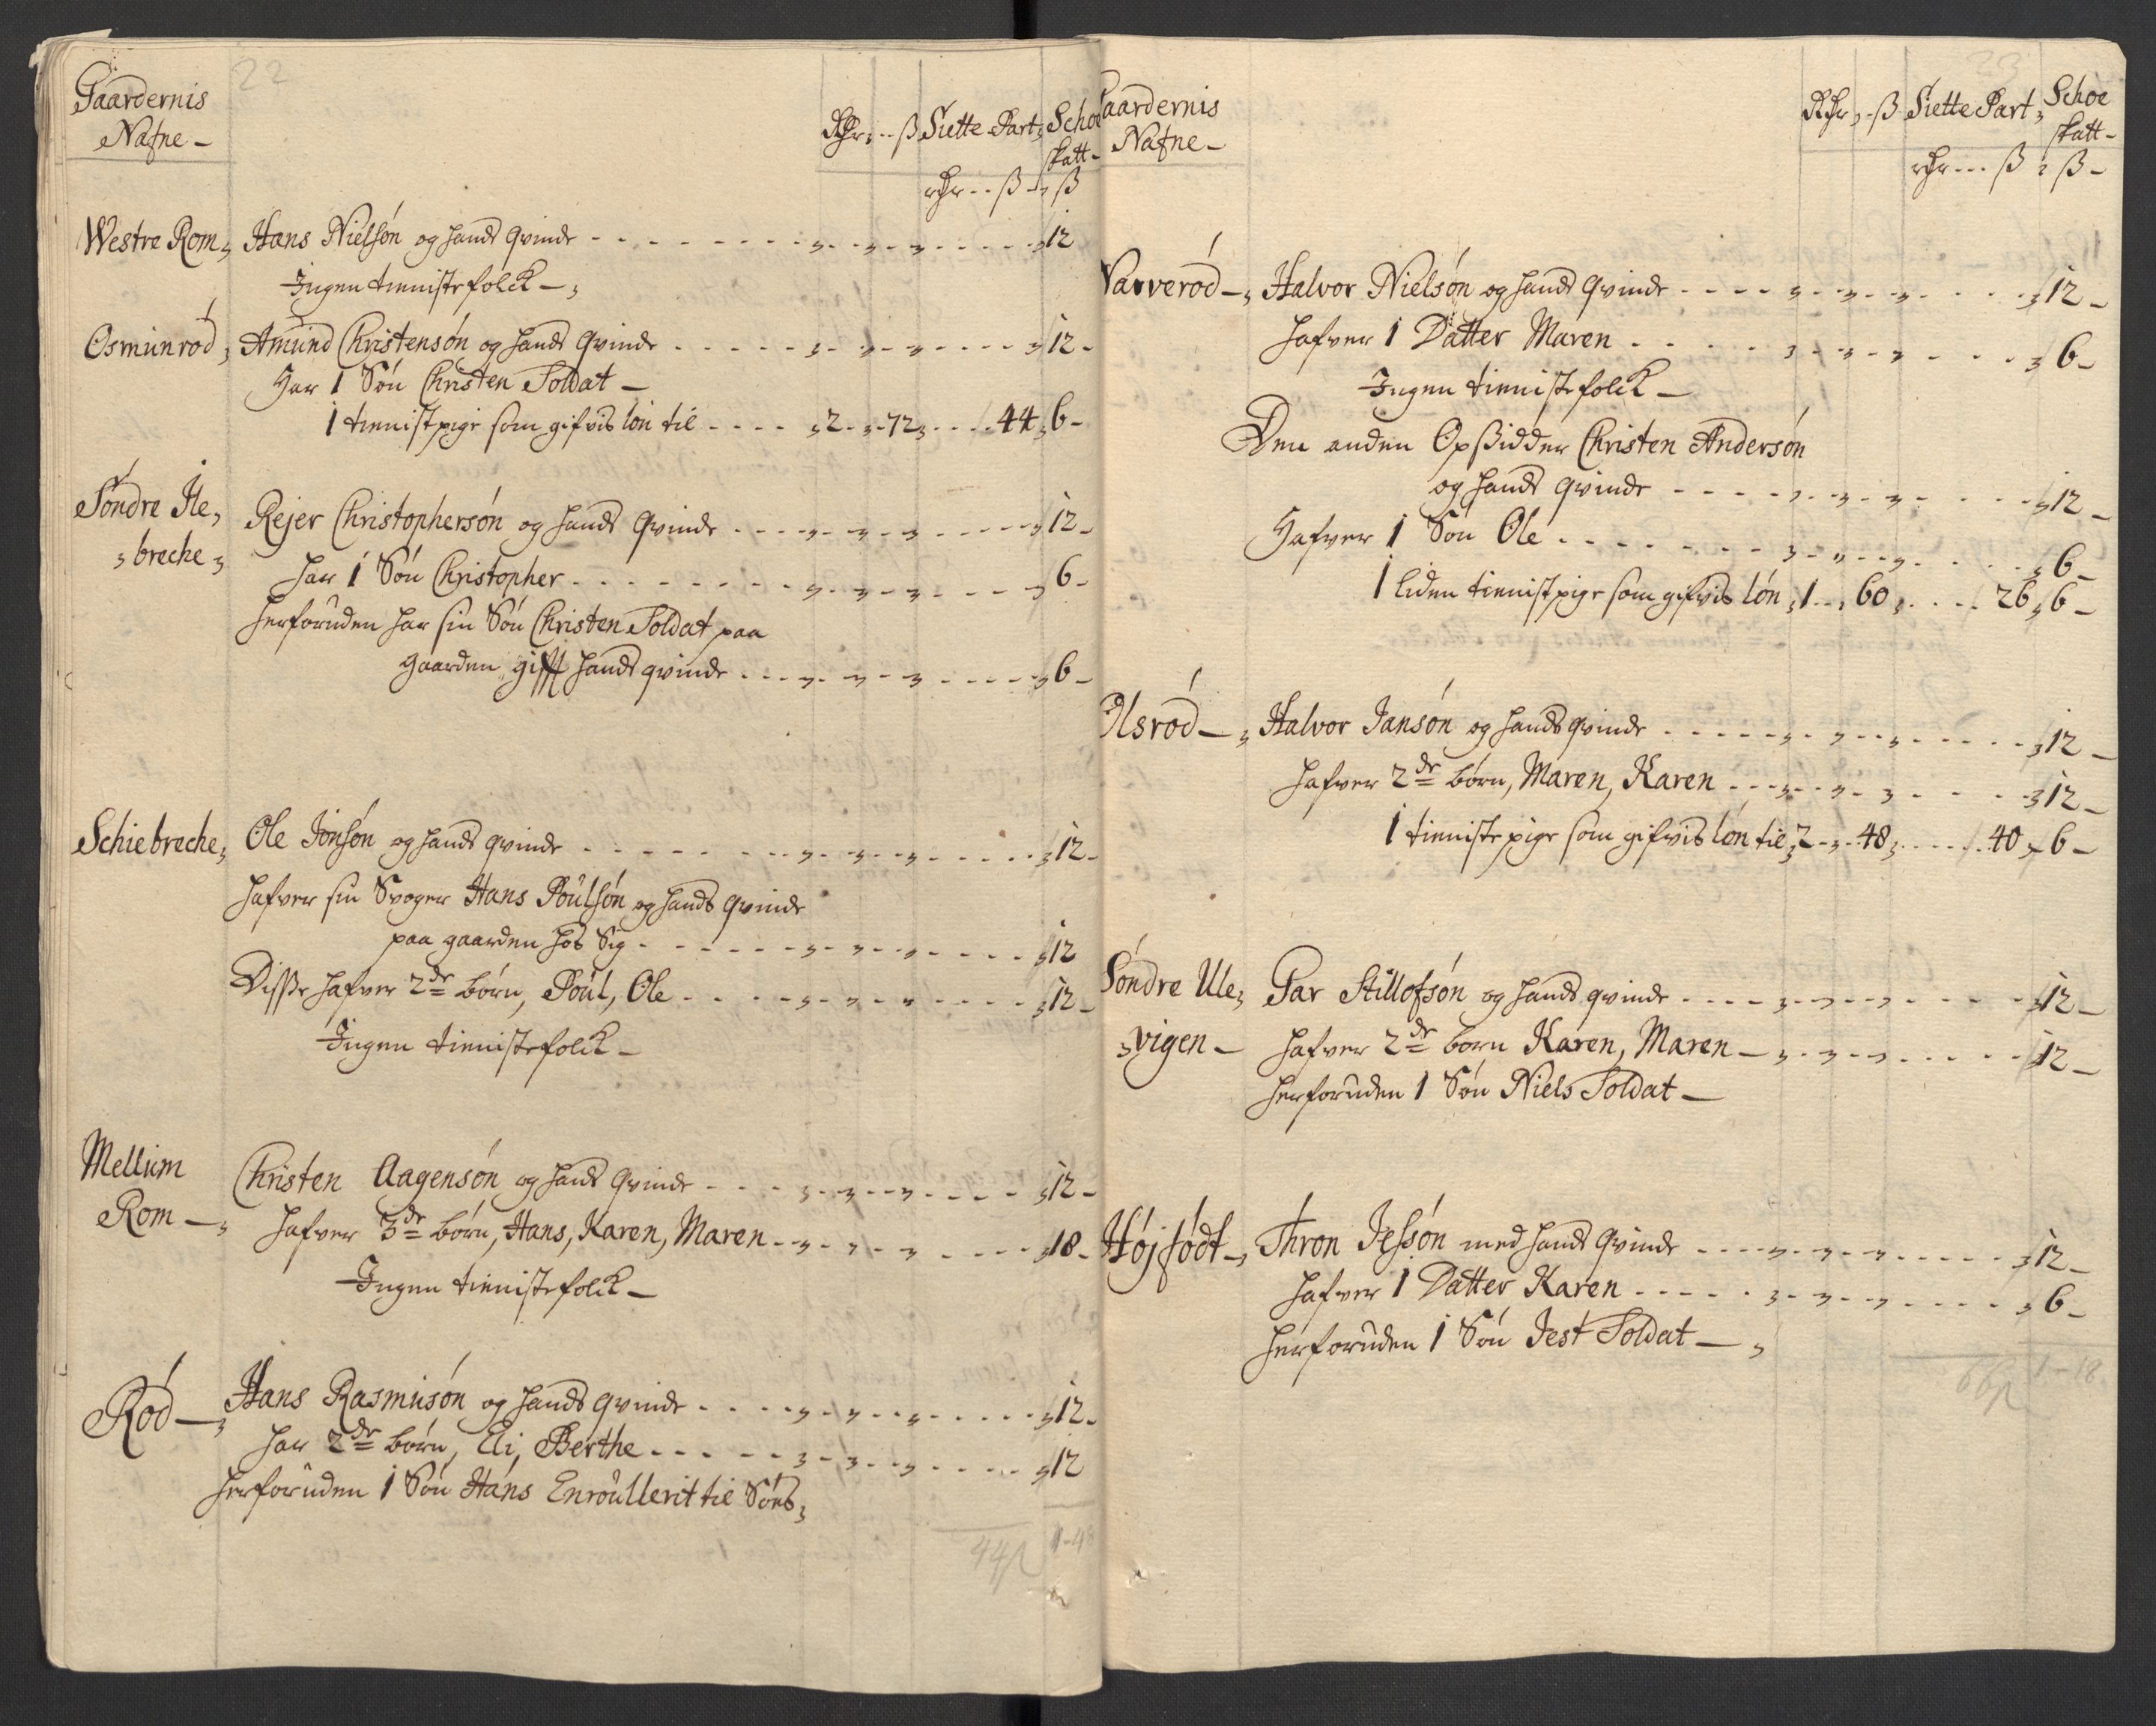 22
Gaardernis
Nafne -
Rdr, - ß Siette Part, Schoe
skatt -
rdr - - ß - ß
Westre Rom, Hans Nielsøn og hands qvinde - - - 12
Ingen tienistefolck -,
Osmunrød, Amund Christensøn og hands qvinde - - - 12 -
Har 1 Søn Christen Soldat -
1 tienistpige som gifvis løn til - - - 2 - 72, - - - 44, 6 -
Søndre Ile, Rejer Christophersøn og hands qvinde - - - 12 -
breche, har 1 Søn Christopher - - - 6 -
herforuden har sin Søn Christen Soldat paa
gaarden, gifft hands qvinde - - - 6 -
Schiebreche, Ole Jonsøn og hands qvinde - - - 12 -
hafver sin Svoger Hans Poulsøn og hands qvinde
paa gaarden hos sig - - - 12
Disse hafver 2de børn, Poul, Ole - - - 12 -
Ingen tienistefolck -
Mellum Christen Aagensøn og hands qvinde - - - 12 -
Rom -, hafver 3de børn, Hans, Karen, Maren - - - 18 -
Ingen tienistefolck -
Rød -, Hans Rasmusøn og hands qvinde - - - 12 -
har 2de børn, Eli, Berthe - - - 12
herforuden 1 Søn Hans Enroullerit til Søes,
44ß 1-48
23
Gaardernis
Nafne -
Rdr, - ß Siette Part, Schoe
skatt -
rdr - - - ß , ß -
Varverød -, Halvor Nielsøn og hands qvinde - - - 12 -
hafver 1 Datter Maren - - - 6 -
Ingen tienistefolck -
Den anden Opsidder Christen Andersøn
og hands qvinde - - - 12 -
Hafver 1 Søn Ole - - - 6 -
1 liden tienistpige som gifvis løn, 1 - , 60, - - - 26, 6 -
Ilsrød -, Halvor Jansøn og hands qvinde - - - 12 -
hafver 2de børn, Maren, Karen - - - 12 -
1 tieniste pige som gifvis løn til, 2 - , - 48, - - - 40, 6 -
Søndre Ule, Gar Stillofsøn og hands qvinde - - - 12 -
vigen - hafver 2de børn Karen, Maren - - - 12 -
herforuden 1 Søn Niels Soldat -
Højfødt -, Thron Jessøn med hands qvinde - - - 12 -
hafver 1 Datter Karen - - - 6 -
herforuden 1 Søn Jest Soldat -,
66ß 1-18